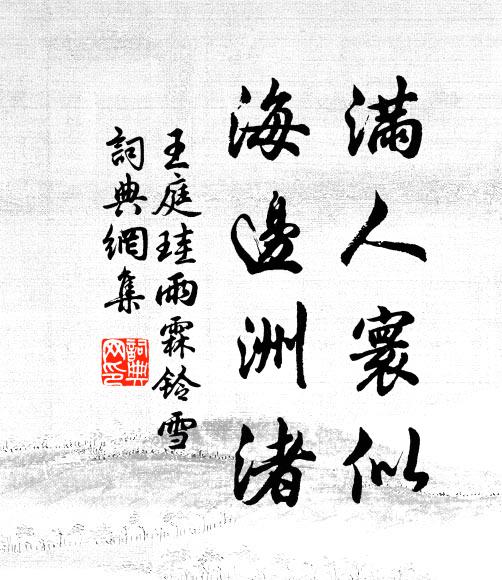 滿人寰似
海邊洲渚
王庭珪雨霖鈴雪
詞典網集
詞典
网印